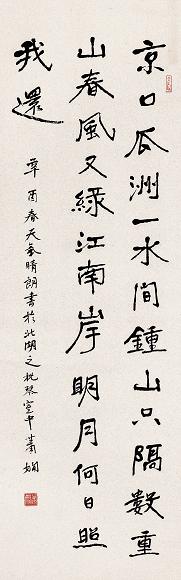 京口瓜洲一水间鍾山只隔數重
山春風又綠江南岸明月何日照
我還
辛酉春天氣晴朗書於北湖之枕琴室中蕭嫻